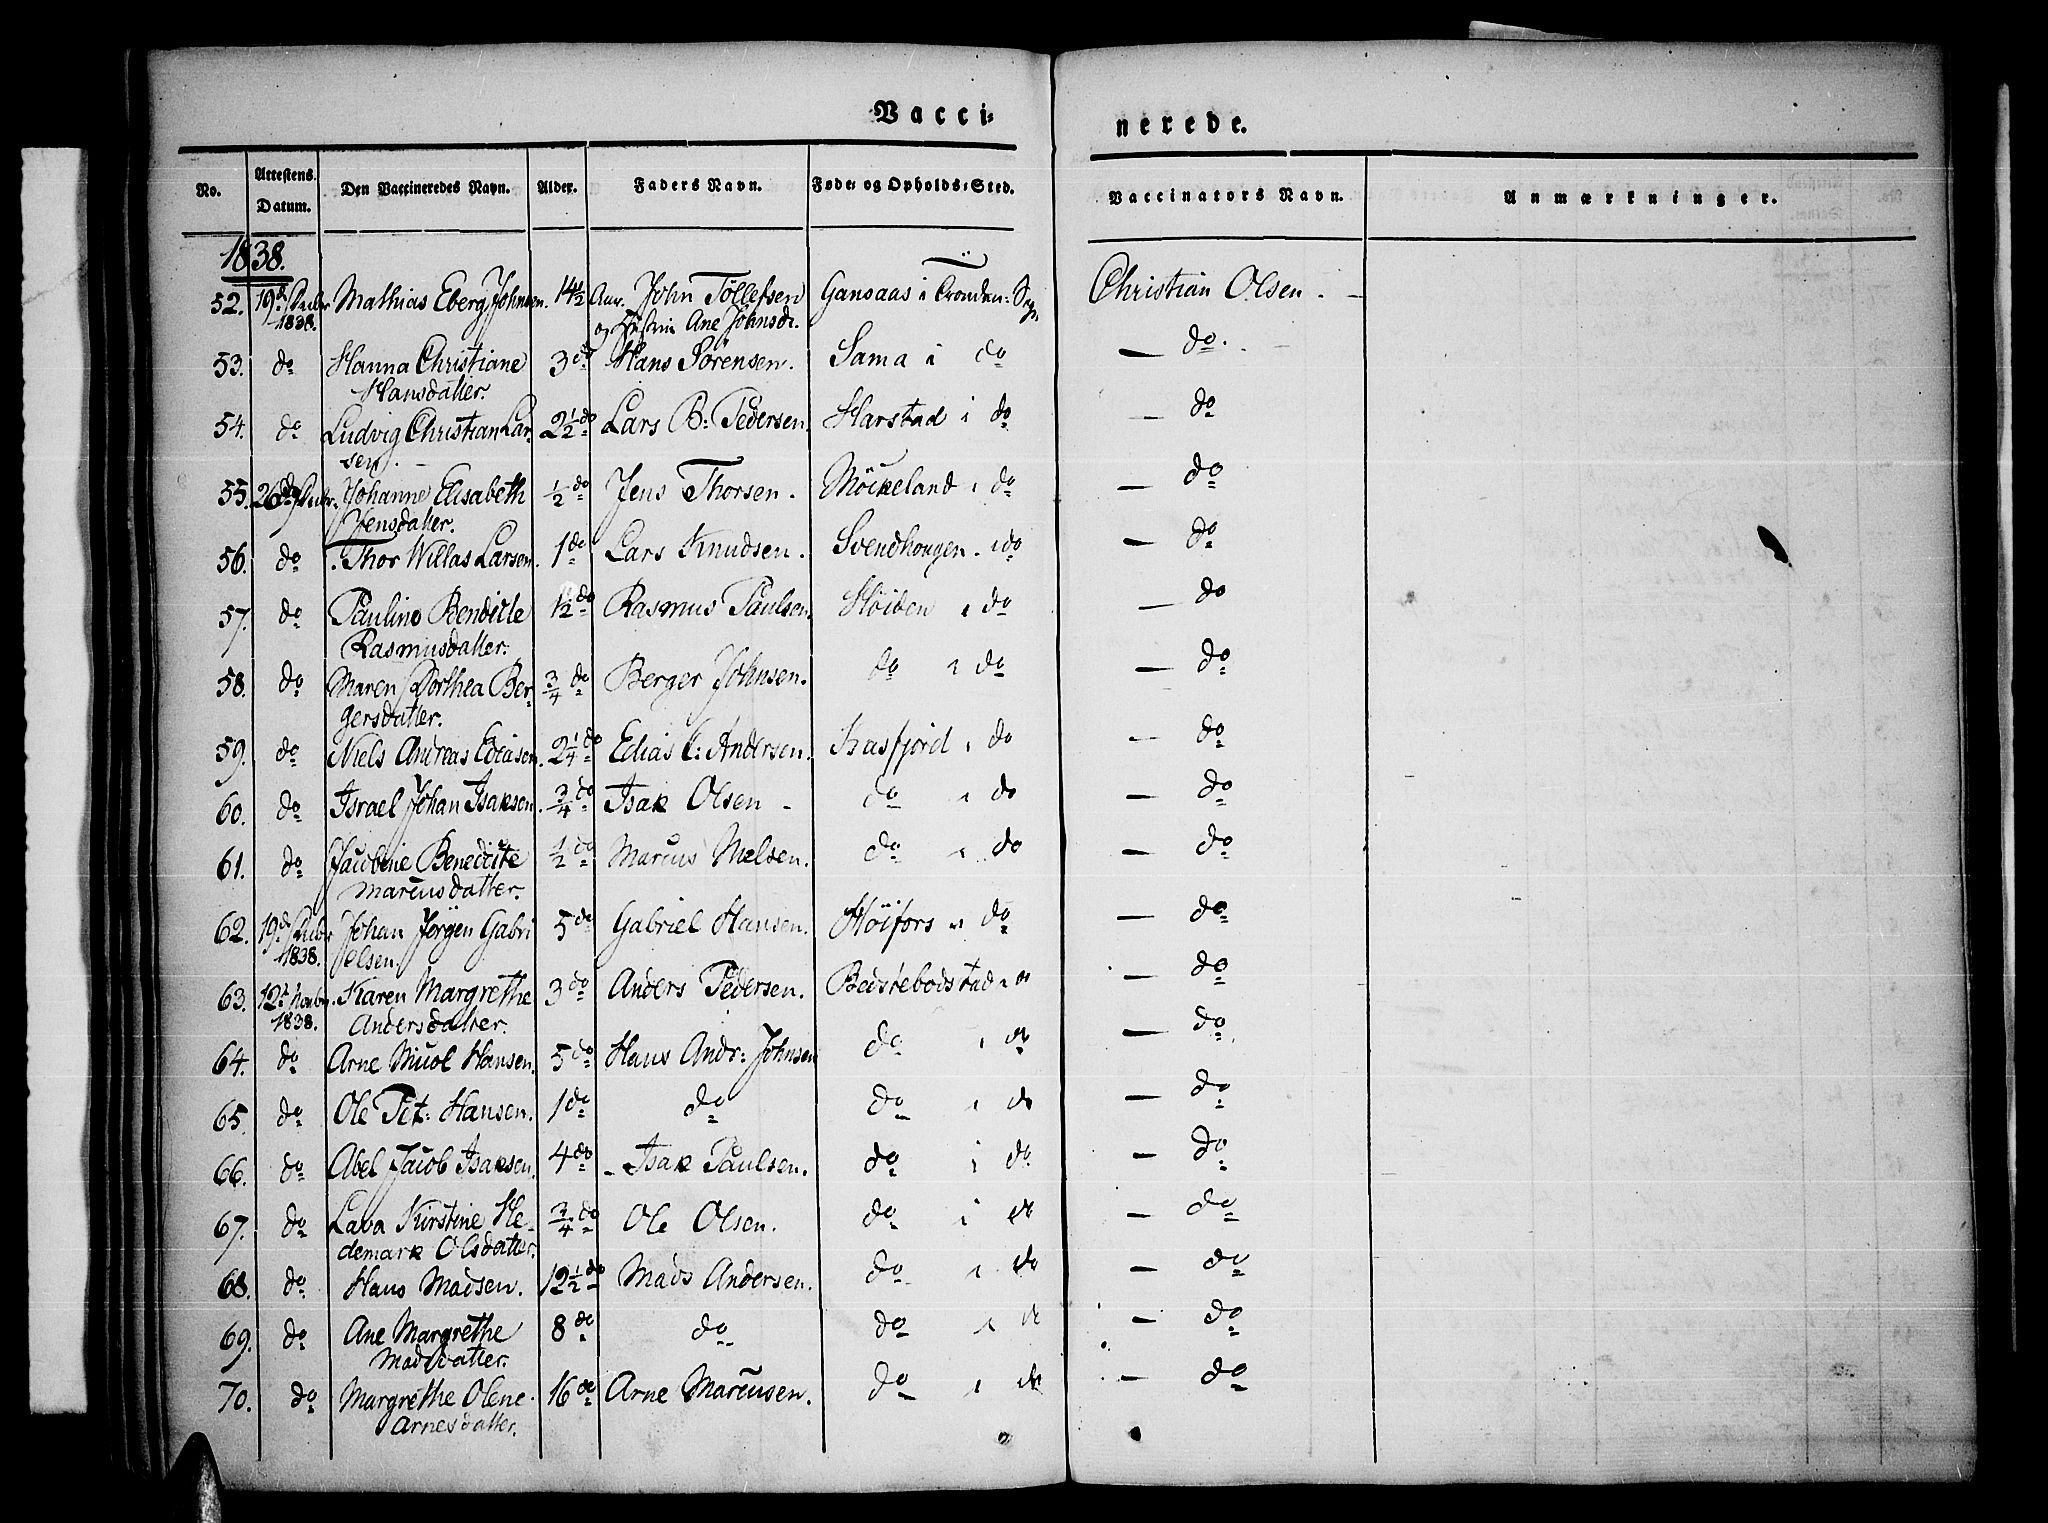 Vacci-
nerede.
No. Attestens Datum. Den Vaccineredes Navn. Alder. Faders Navn. Føde- og Opholds-Sted. Vaccinators Navn. Anmærkninger.
1838.
52. 19d 1838. Mathias Eberg Johnsen. 14½ Aar. John Tollefsen Gansaas i Christian Olsen.
og Hustrue Ane Johnsdr.
53. do Hanna Christiane 3 do Hans Sörensen. Sama i do — do.
Hansdatter.
54. do Ludvig Christian Lar- 2½ do Lars B: Pedersen. Harstad i do — do
sen.
55. 26de Johanne Elisabeth ½ do Jens Thorsen. Möckeland i do — do
Jensdatter.
56. do Thor Willas Larsen. 1 do Lars Knudsen. Svendhougen i do — do
57. do Pauline Bendicte 1½ do Rasmus Paulsen. Höiden i do — do
Rasmusdatter.
58. do Maren Dorthea Ber- ¾ do Berger Johnsen. do i do — do
gersdatter.
59. do Niels Andreas Ediasen. 2¼ do Edias C: Andersen. Kasfjord i do — do
60. do Israel Johan Isaksen. ¾ do Isak Olsen do i do — do
61. do Jacobine Benedicte ½ do Marcus Nielsen. do i do — do
Marcusdatter.
62. 19d 1838. Johan Jörgen Gabri 5 do Gabriel Hansen. Höifors i do — do
elsen.
63. 12t Novbr. 1838. Karen Margrethe 3 do Anders Pedersen. i do — do
Andersdatter.
64. do Arne Hansen. 5 do Hans Andr: Johnsen do i do — do
65. do Ole Pet: Hansen. 1 do do do i do — do
66. do Abel Jacob Isaksen. 4 do Isak Paulsen. do i do — do
67. do Lava Kirstine He- ¾ do Ole Olsen. do i do — do
demark Olsdatter.
68. do Hans Madsen. 12½ do Mads Andersen. do i do — do
69. do Ane Margrethe 8 do do do i do — do
Madsdatter.
70. do Margrethe Olene 16 do Arne Marcusen. do i do — do
Arnesdatter.